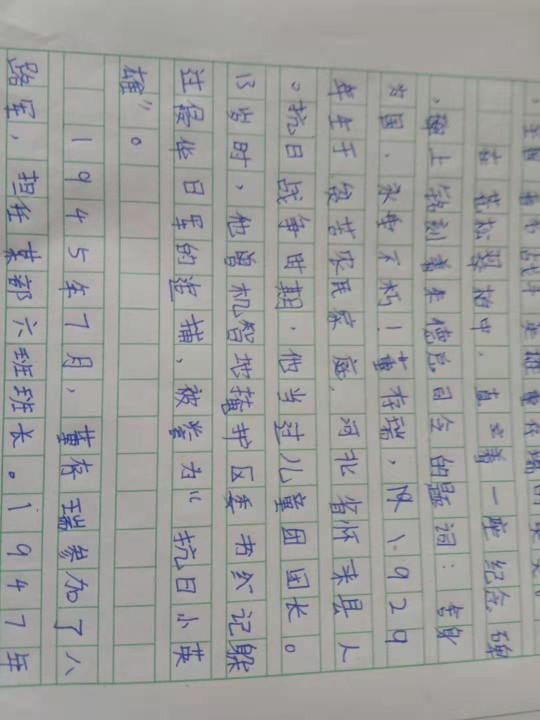 在花松翠柏中，直立着一座纪念碑
，碑上铭刻着朱德总司令的题词：舍身
为国，永垂不朽！董存瑞，汉，1929
年生于贫苦农民家庭，河北省怀来县人
。抗日战争时期，他当过儿童团团长。
13岁时，他曾机智地掩护区委书纪记躲
过侵华日军的追捕、被誉为“抗日小英
雄”。
1945年7月，董存瑞参加了八
路军，担任某部六班班长。1947年